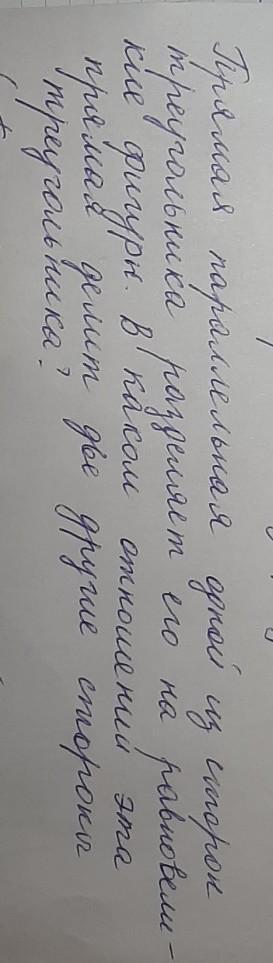 Прямая параллельная одной из сторон
треугольника разделяет его на равновели-
кие фигуры. В каком отношении эта
прямая делит две другие стороны
треугольника?